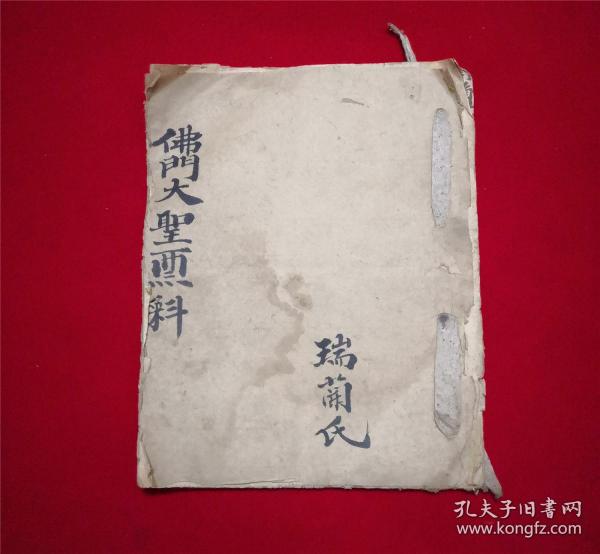 佛門大聖票科
瑞蘭氏
孔夫子旧书网
www.kongfz.com